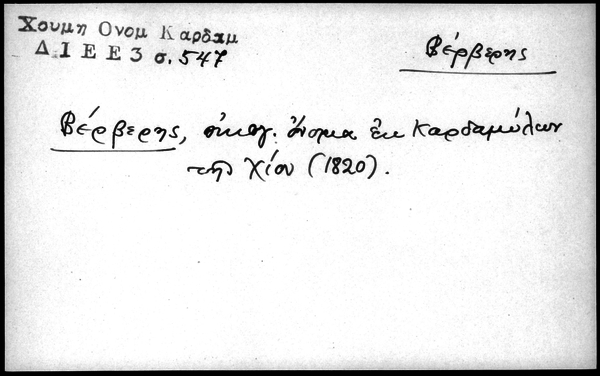 Χουμη Ονομ Καρδαμ
Δ.Ι Ε Ε 3 σ. 547
Βέρβερης
Βέρβερης, οἰκογ. ὄνομα ἐκ Καρδαμύλων
τῆς Χίου (1820).